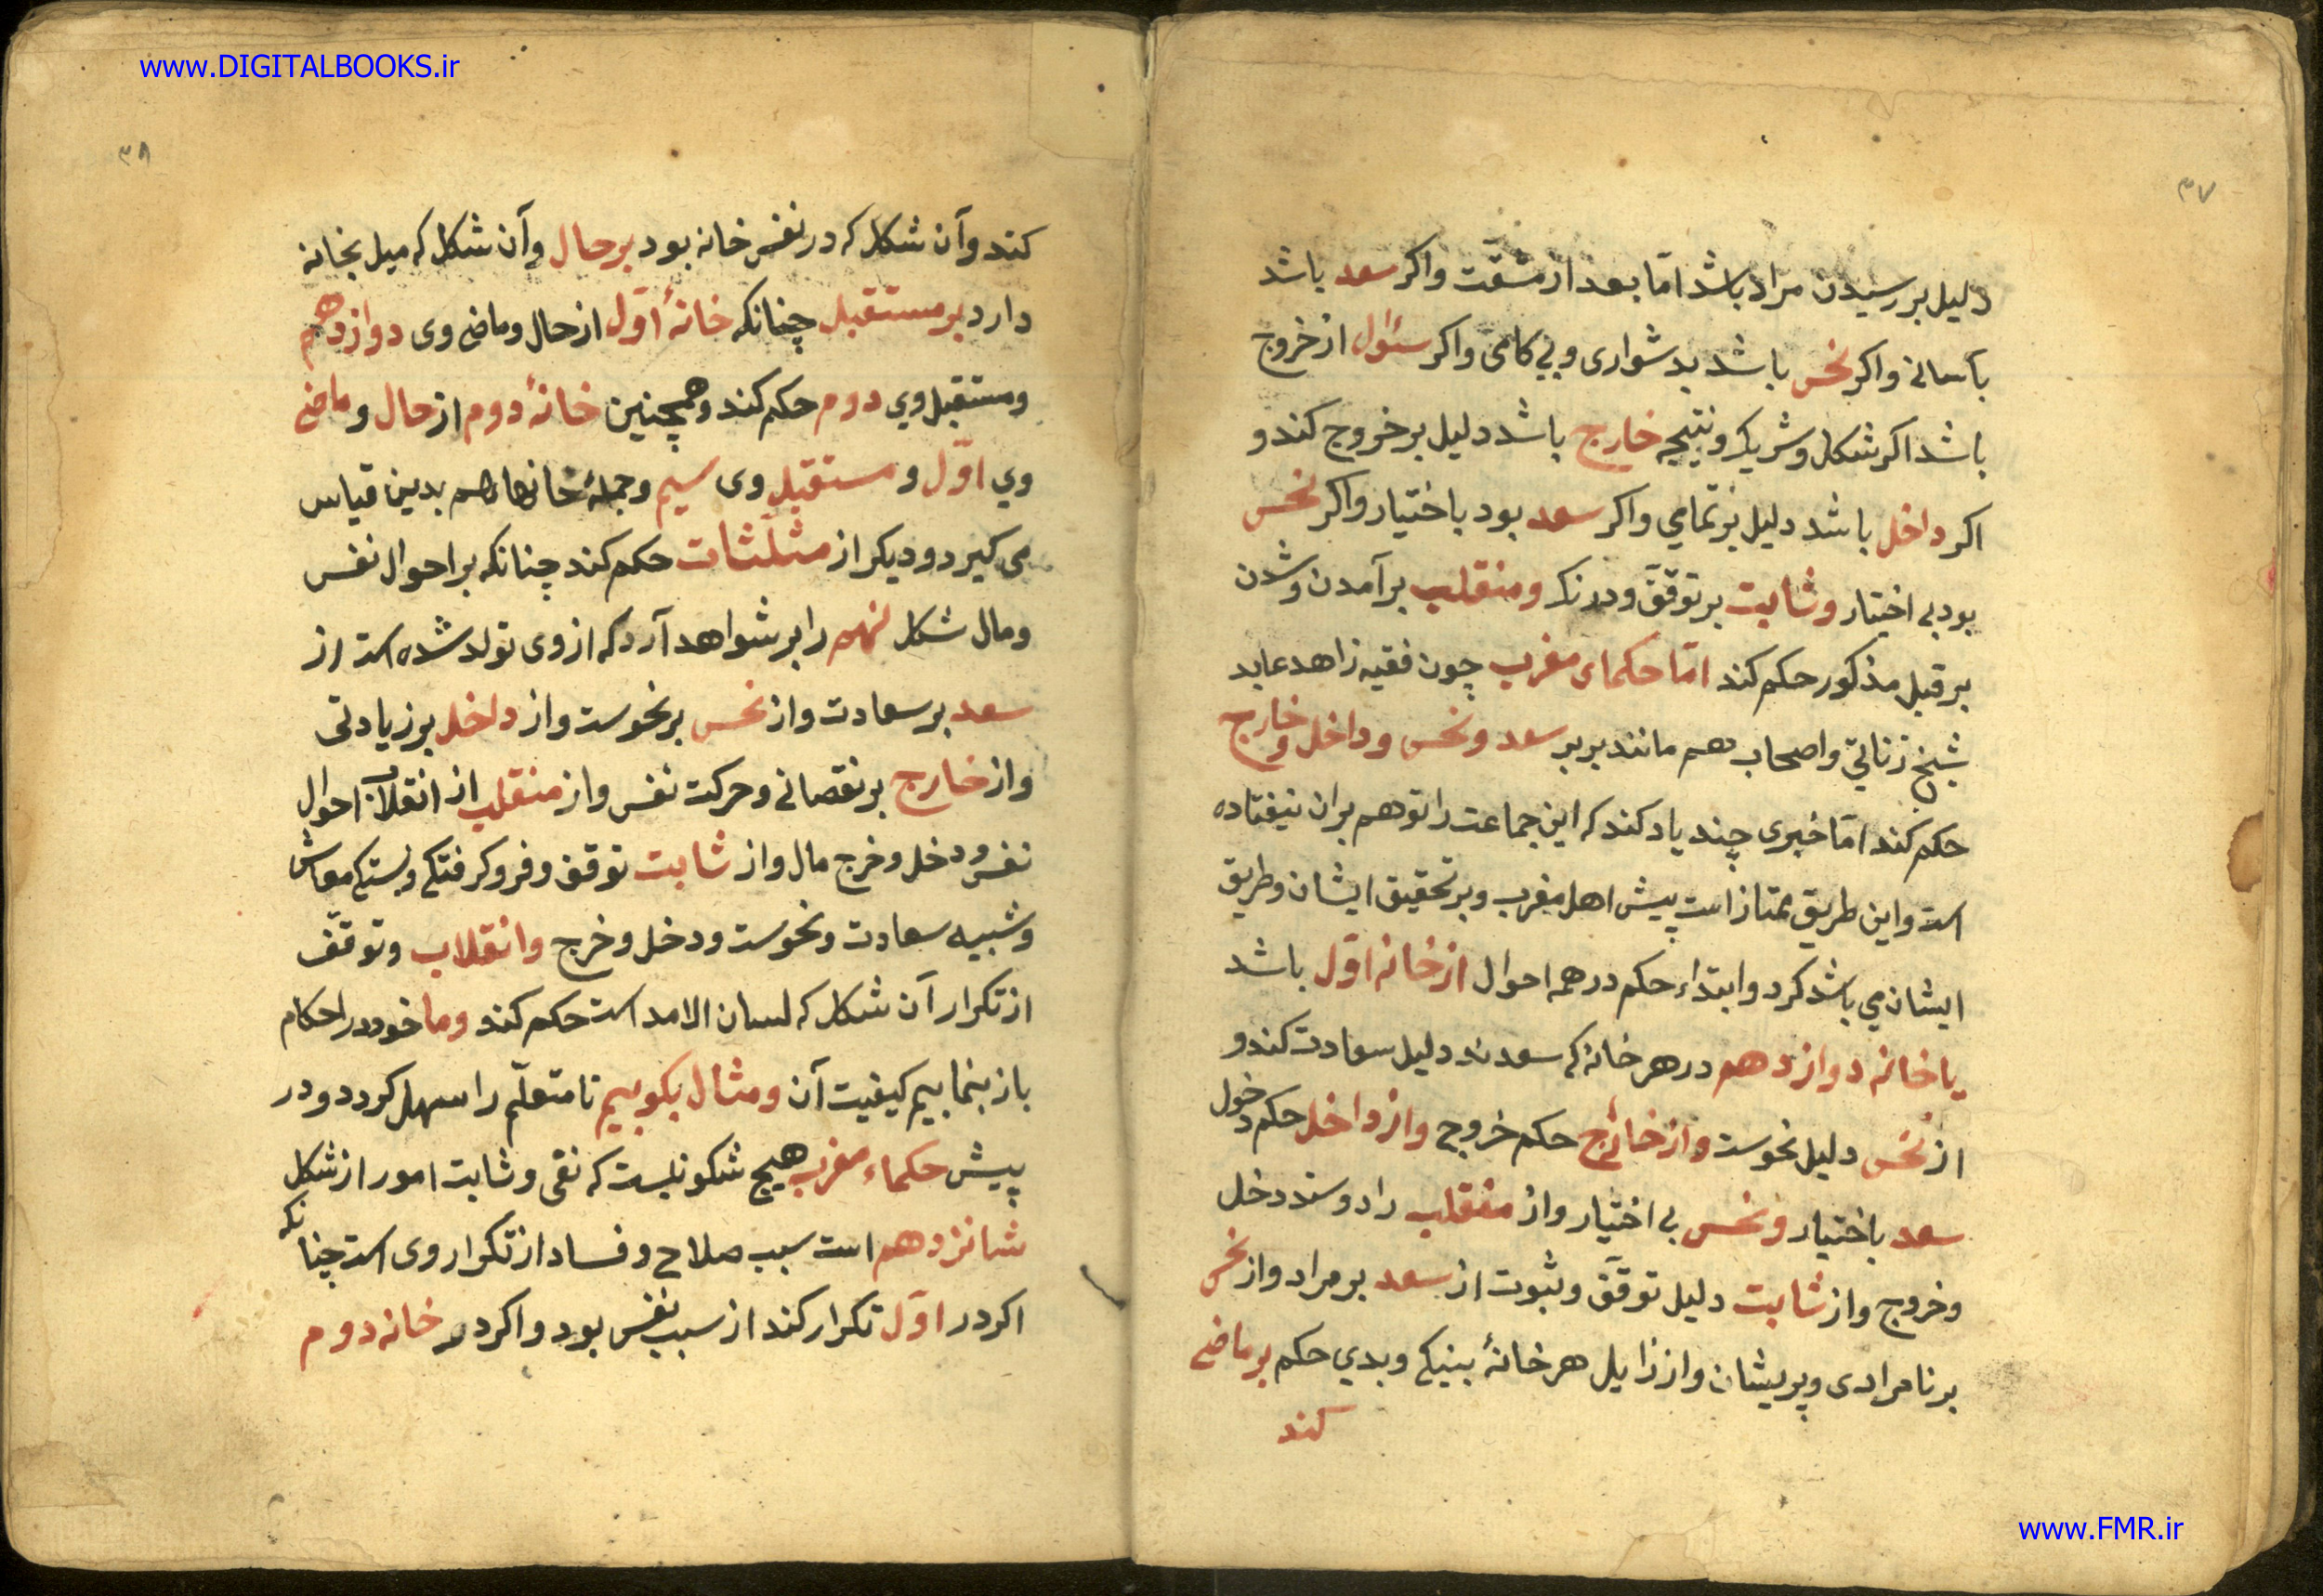 www.DIGITALBOOKS.ir
۳۷
دلیل بر رسیدن مراد باشد امّا بعد از مشقّت واکر سعد باشد
بآسانی واکر نحس باشد بدشواری و بی کامی واکر سئوال از خروج
باشد اکر شکل و شریک و نتیجه خارج باشد دلیل بر خروج کند و
اکر داخل باشد دلیل بر تمامی واکر سعد بود باختیار واکر نحس
بود بی اختیار وثابت بر توقّف و درنک ومنقلب بر آمدن و شدن
بر قبل مذکور حکم کند امّا حکماء مغرب چون فقیه زاهد عابد
شیخ زناتی و اصحاب هم مانند بربر سعد ونحس وداخل وخارج
حکم کند امّا خبری چند یاد کند که این جماعت را توهم بران نیفتاده
است واین طریق ممتاز است پیش اهل مغرب وبر تحقیق ایشان وطریق
ایشان می باشد کرد وابتداء حکم در همه احوال از خانه اوّل باشد
یا خانه دوازدهم در هر خانه که سعدند دلیل سعادت کند و
از نحس دلیل نحوست واز خارج حکم خروج واز داخل حکم دخول
سعد باختیار ونحس بی اختیار واز منقلب را دوستد دخل
وخروج واز ثابت دلیل توقّف وثبوت از سعد بر مراد واز نحس
بر نامرادی وپریشان واز زایل هر خانهٔ بنیکی وبدی حکم بر ماضی
کند
۳۸
کند وآن شکل که در نفس خانه بود بر حال وآن شکل که میل بخانه
دارد بر مستقبل چنانکه خانهٔ اوّل از حال وماضی وی دوازدهم
ومستقبل وی دوم حکم کند وهمچنین خانهٔ دوم از حال وماضی
وی اوّل ومستقبل وی سیم وجملهٔ خانها هم بدین قیاس
می کیرد ودیکر از مثلّثات حکم کند چنانکه بر احوال نفس
ومال شکل نهم را بر شواهد آرد که از وی تولد شده است از
سعد بر سعادت واز نحس بر نحوست واز داخل بر زیادتی
واز خارج بر نقصانی وحرکت نفس واز منقلب از انقلاب احوال
نفس ودخل وخرج مال واز ثابت توقف وفرو کرفتکی وبستکی معاش
وشبیه سعادت ونحوست ودخل وخرج وانقلاب وتوقّف
از تکرار آن شکل که لسان الامد است حکم کند وما خود در احکام
باز بنماییم کیفیت آن ومثال بکوییم تا متعلّم را سهل کردد ودر
پیش حکماء مغرب هیچ شکو نیست که نقی وثابت امور از شکل
شانزدهم است سبب صلاح وفساد از تکرار وی است چنانکه
اکر در اوّل تکرار کند از سبب نفس بود واکر در خانه دوم
www.FMR.ir